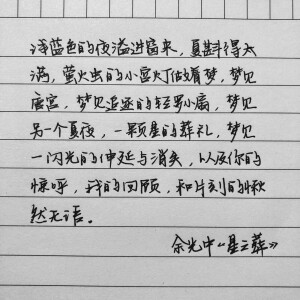 浅蓝色的夜溢进窗来，夏斟得太
满，萤火虫的小宫灯做着梦，梦见
唐宫，梦见追逐的轻罗小扇，梦见
另一个夏夜，一颗星的葬礼，梦见
一闪光的伸延与消失，以及你的
惊呼，我的回顾，和片刻的愀
然无语。
余光中《星之葬》